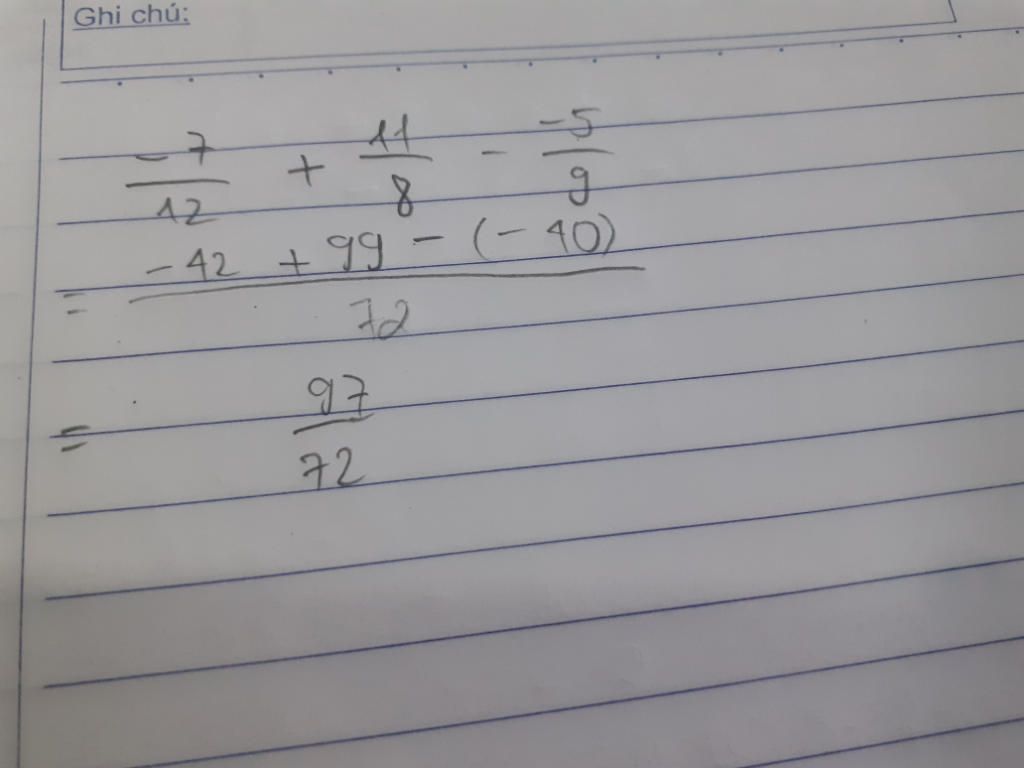 Ghi chú:
-7/12 + 11/8 - -5/9
= -42 + 99 - (-40) / 72
= 97/72